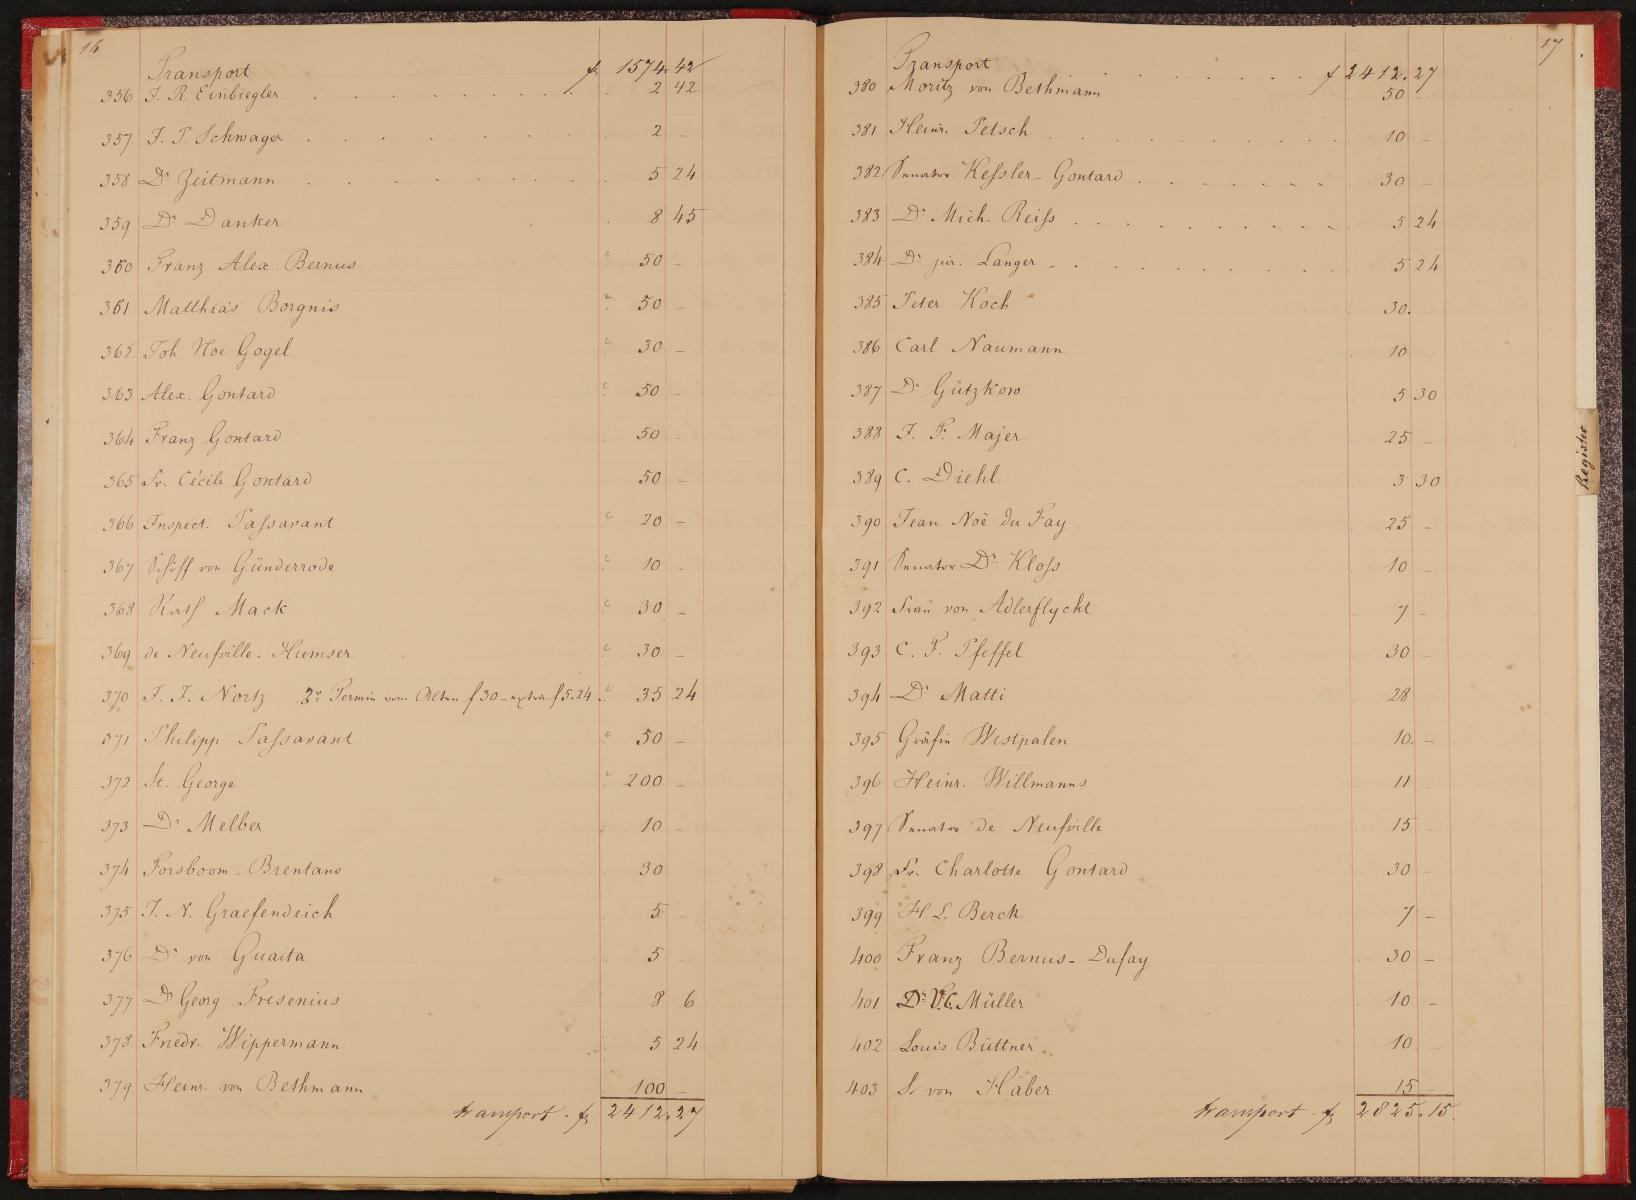 16
Transport f 1574. 42
356 J. R. Einbiegler 2 42
357 J. P. Schwager 2
358 Dr Zeitmann 5 24
359 Dr Danker 8 45
360 Franz Alex. Bernus 50 –
361 Matthias Borgnis 50 –
362. Joh. Noe Gogel 30 –
363 Alex. Gontard 50 –
364 Franz Gontard 50 –
365 Fr. Cécile Gontard 50 –
366 Inspect. Passavant 20 –
367 Schöff von Günderrode 10 –
368 Rath Mack 30 –
369 de Neufville-Humser 30 –
370 J. J. Nortz 3r Termin vom Alten f 30 – extra f 5.24 35 24
371 Philipp Passavant 50 –
372 St. George 200 –
373 Dr Melber 10 –
374 Forsboom-Brentano 30
375 J. N. Graefendeich 5 –
376 Dr von Guaita 5 –
377 Dr Georg Fresenius 8 6
378 Friedr. Wippermann 5 24
379 Heinr. von Bethmann 100 –
transport. f 2412. 27
17
Transport f 2412. 27
380 Moritz von Bethmann 50 –
381 Heinr. Petsch 10 –
382 Senator Kessler-Gontard 30 –
383 Dr Mich. Reiss 5 24
384 Dr jur. Langer 5 24
385 Peter Koch 30.
386 Carl Naumann 10 –
387 Dr Gützkow 5 30
388 J. F. Majer 25 –
389 C. Diehl 3 30
390 Jean Noë du Fay 25 –
391 Senator Dr Kloss 10 –
392 Frau von Adlerflycht 7 –
393 C. F. Pfeffel 30 –
394 Dr Matti 28
395 Gräfin Westpalen 10 –
396 Heinr. Willmanns 11 –
397 Senator de Neufville 15 –
398 Fr. Charlotte Gontard 30 –
399 H. L. Berck 7 –
400 Franz Bernus-Dufay 30 –
401 Dr Müller 10 –
402 Louis Büttner 10.
403 von Haber 15 –
transport. f 2825. 15.
Register